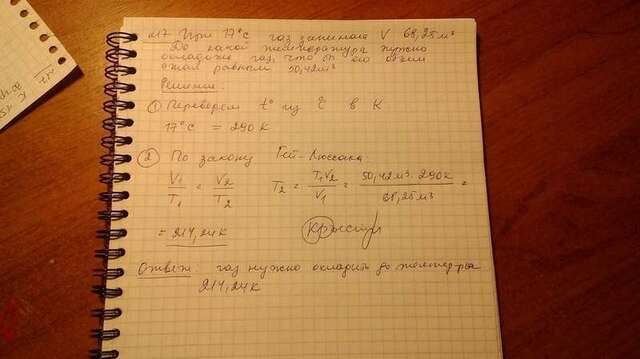 №17 При 17°С газ занимает V 68,25м³
До какой температуры нужно
охладить газ, чтоб его объем
стал равным 50,42м³
Решение:
① Переведем t° из °С в К
17°С = 290 К
② По закону Гей-Люссака:
V₁/T₁ = V₂/T₂ T₂ = T₁V₂/V₁ = 50,42м³ · 290К/68,25м³ =
= 214,24К
Ответ: газ нужно охладить до температуры
214,24К